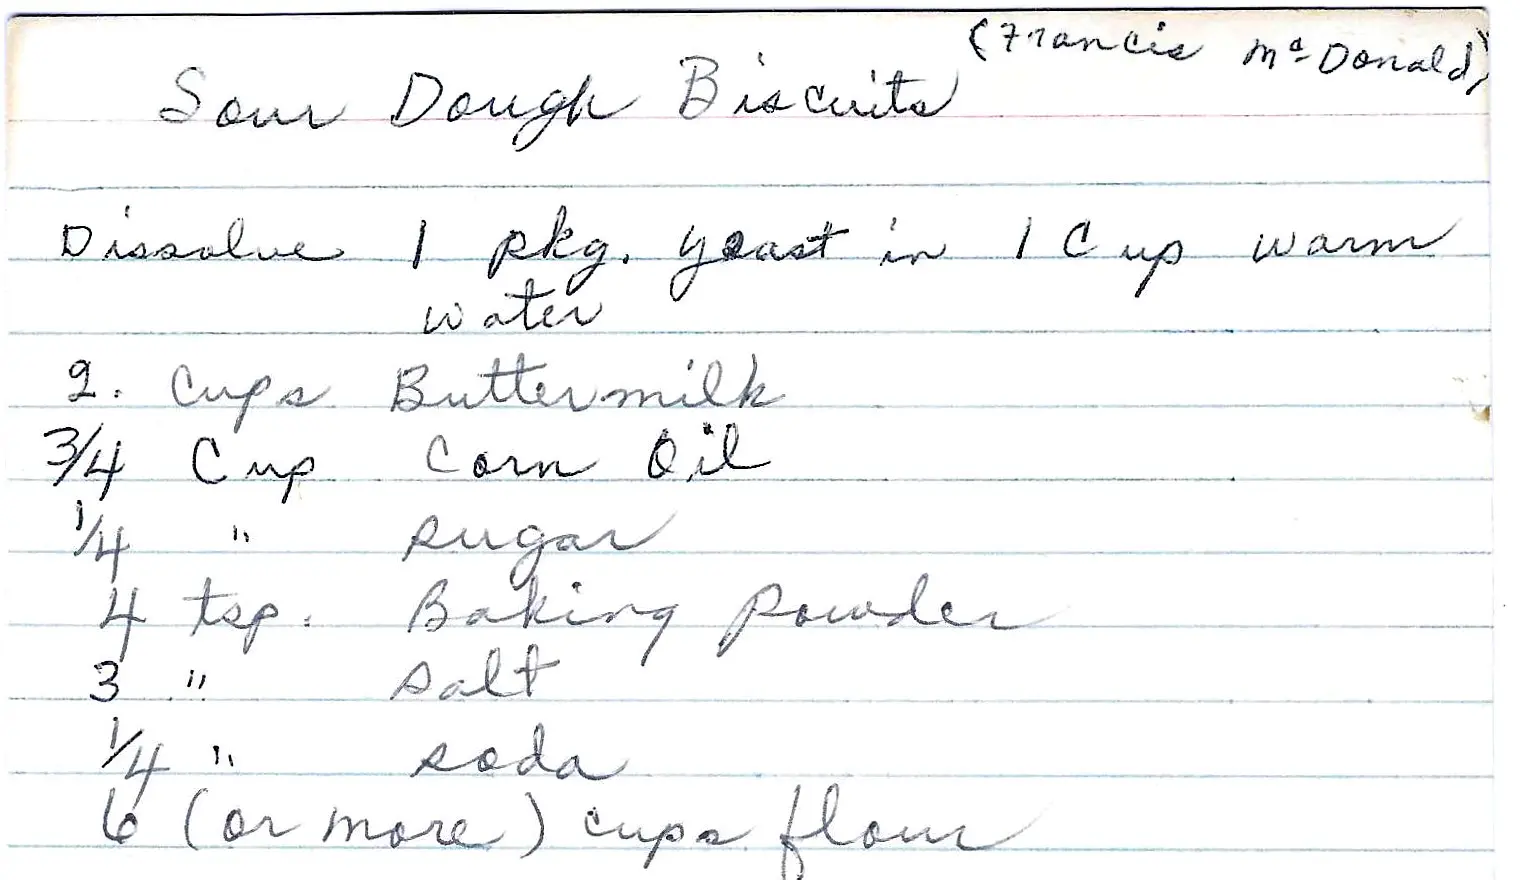 (Francis McDonald)
Sour Dough Biscuits
Dissolve 1 pkg. yeast in 1 Cup warm
water
2. Cups Buttermilk
3/4 Cup Corn Oil
1/4 " sugar
4 tsp. Baking Powder
3 " salt
1/4 " soda
6 (or more) cups flour